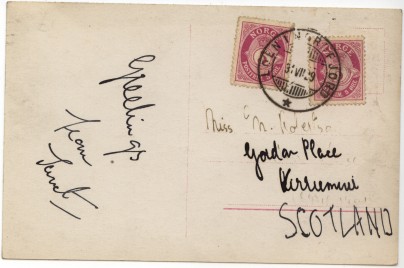 Greetings
from
Janet
NORGE
NORGE
Miss M.
Gordon Place
Kirriemuir
SCOTLAND